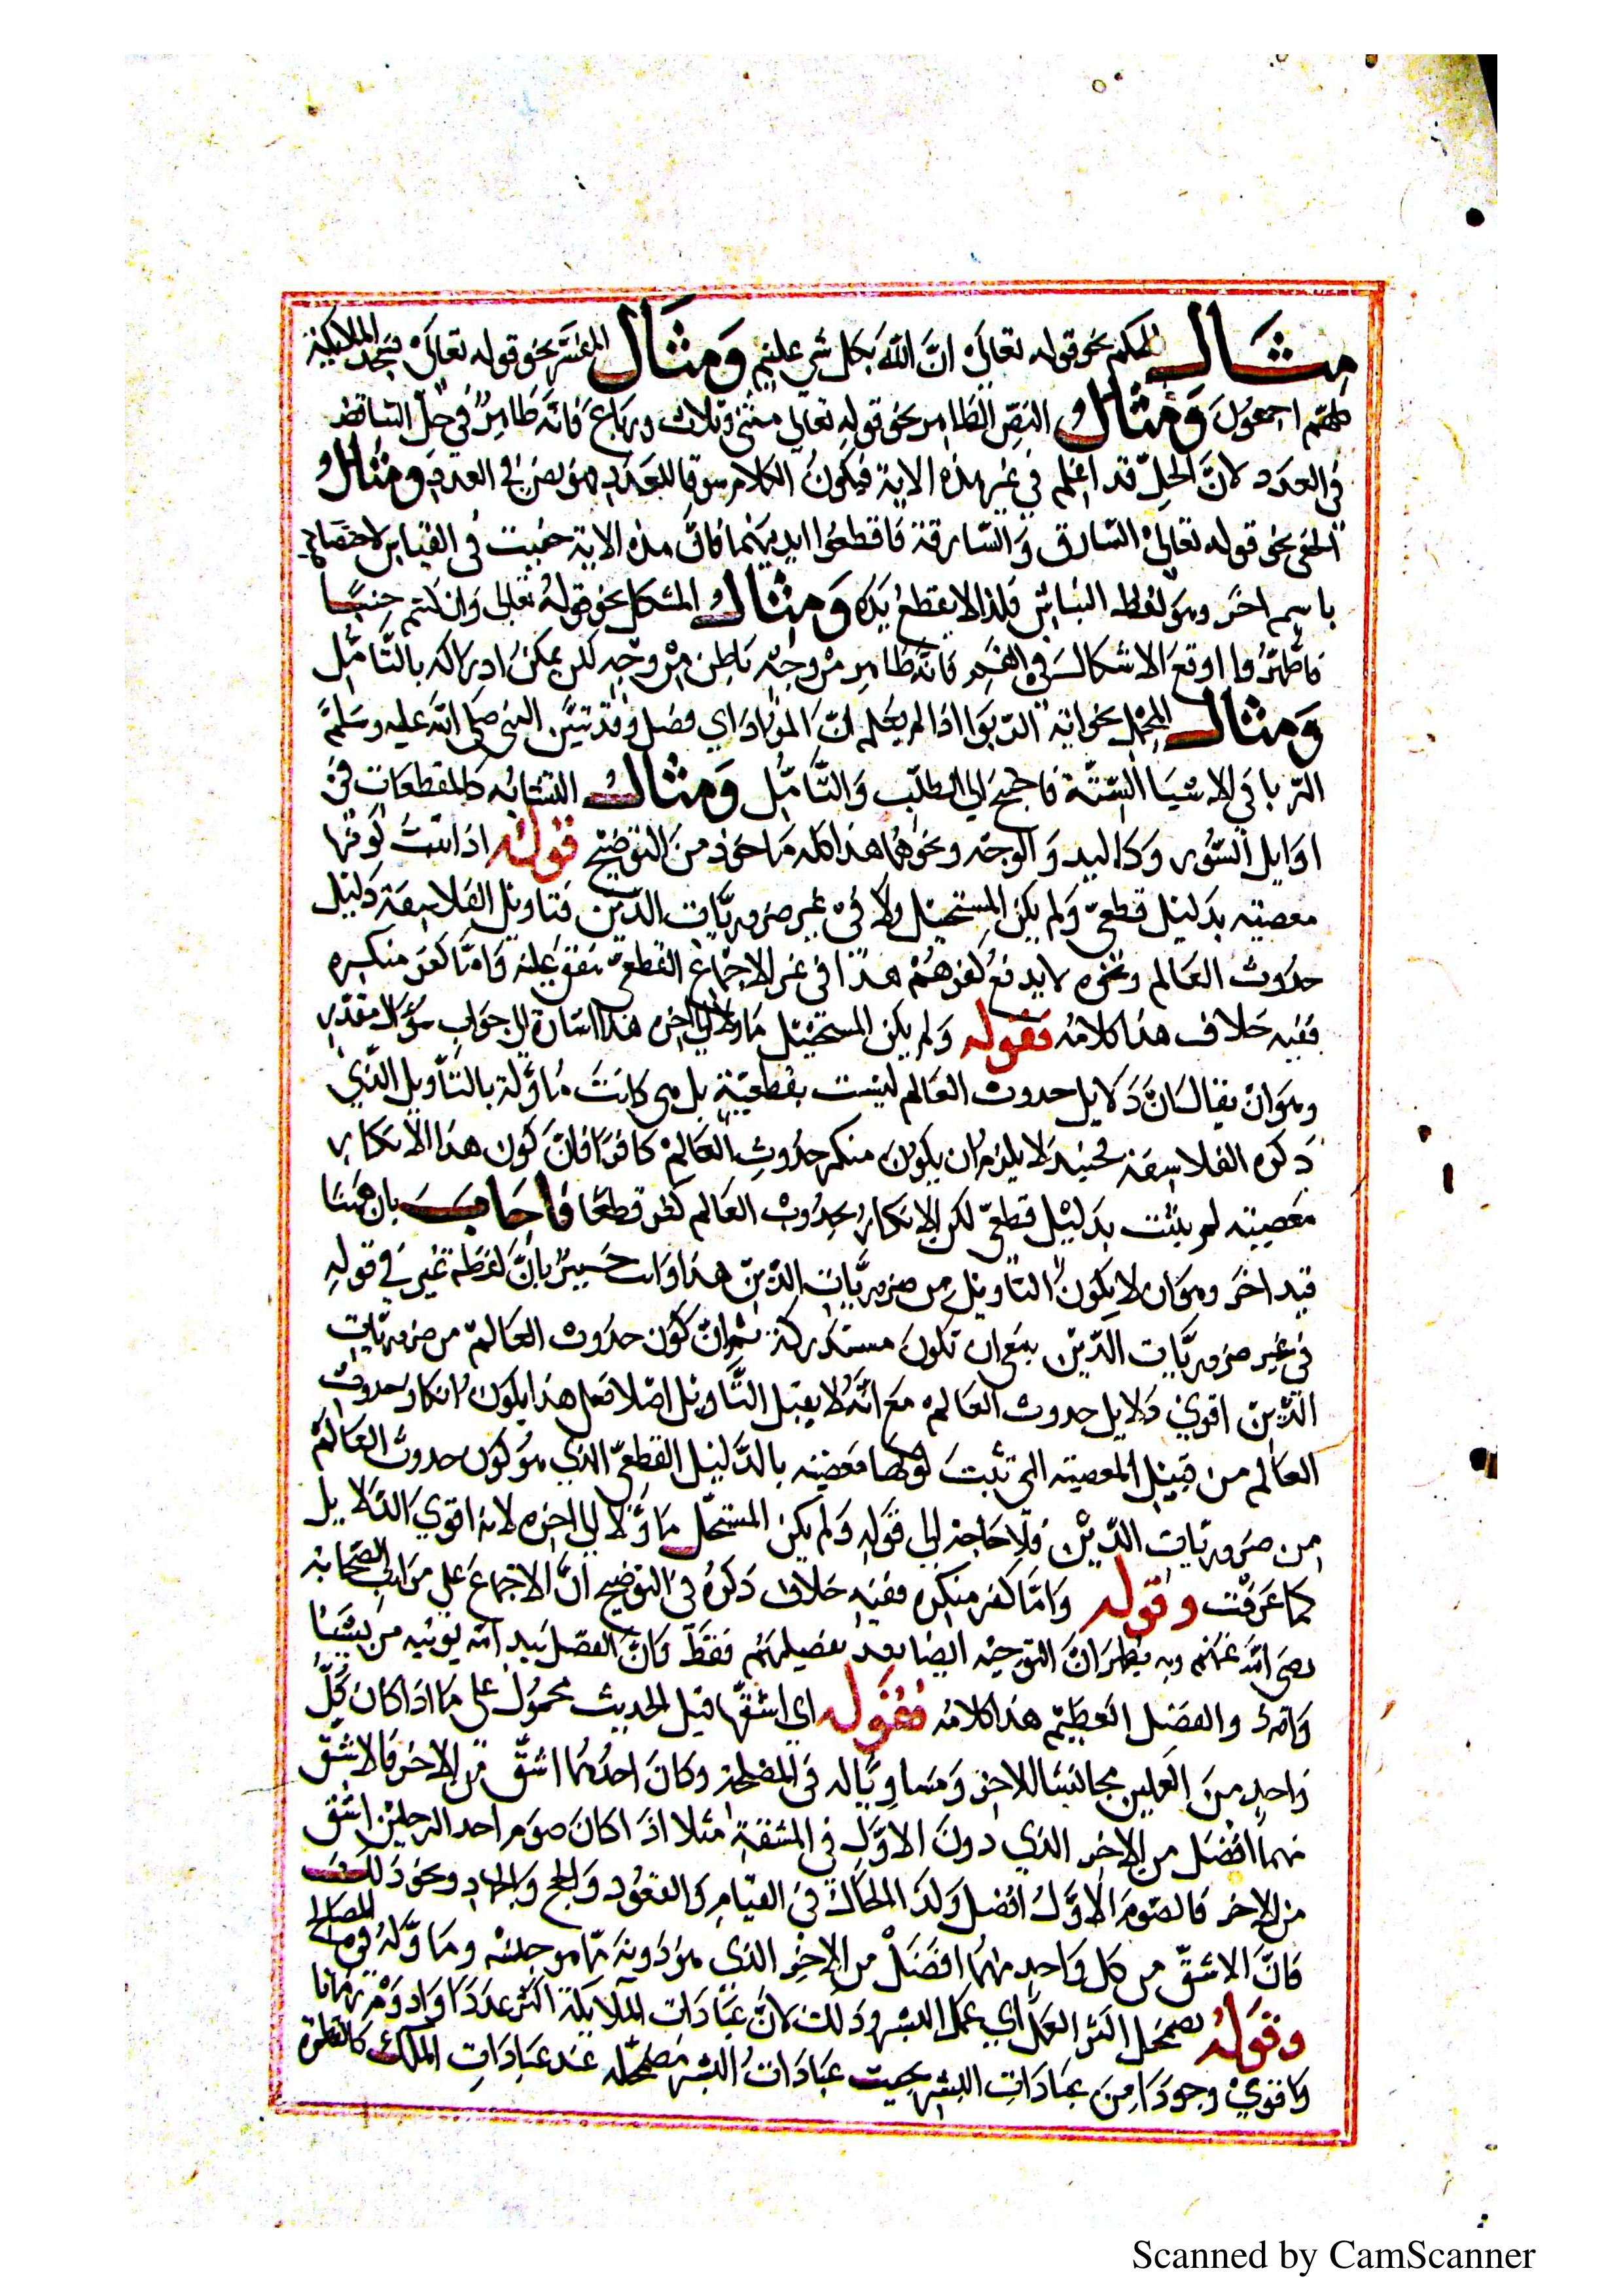 مثال المحكم نحو قوله تعالى ان الله بكل شي عليم ومثال المفسر نحو قوله تعالى فسجد الملائكة
كلهم اجمعون ومثال النص الظاهر نحو قوله تعالى مثنى وثلاث ورباع فانه ظاهر في حل
في العدد لان الحل قد اعلم في غير هذه الاية فيكون الكلام سوقا للعدد هو نص في العدد ومثال
الخفى نحو قوله تعالى السارق والسارقة فاقطعوا ايديهما فان هذه الاية خفيت في
باسم اخر وهو لفظه النباش فلذا لا يقطع يده ومثال المشكل نحو قوله تعالى وان كنتم جنبا
فاطهروا اوقع الاشكال في الفم فانه ظاهر من وجه باطن من وجه لكن يمكن ادراكه بالتامل
ومثال المجمل نحو اية الربوا اذا لم يعلم ان المراد اي فضل وقد تبين النبى صلى الله عليه وسلم
الربا في الاشيا الستة فاحتيج الى الطلب والتامل ومثال المتشابه كالمقطعات في
اوايل السور وكاليد والوجه ونحوهما هذا كله ماخوذ من التوضيح قوله اذا ثبت كونها
معصيته بدليل قطعي ولم يكن المستحيل ولا في غير ضروريات الدين فتاويل الفلاسفة دليل
حدوث العالم ونحوه لا يدفع كفرهم هذا في غير الاجماع القطعي متفق عليه واما كفر منكره
ففيه خلاف هذا كلامه فقوله ولم يكن المستحيل ماولا الى اخره هذا اشارة الى جواب سؤال مقدر
وهو ان يقال ان دلايل حدوث العالم ليست بقطعية بل هى كانت ماولة بالتاويل الذي
ذكره الفلاسفة فحينيذ لا يلزم ان يكون منكر حدوث العالم كافرا فان كون هذا الانكار
معصيته لم يثبت بدليل قطعي لكن الانكار بحدوث العالم كفر قطعا فاجاب بان ههنا
قيد اخر وهو ان لا يكون التاويل من ضروريات الدين هذا وانت خبير بان لفظة غير في قوله
في غير ضروريات الدين ينبغى ان تكون مستدركة ثم ان كون حدوث العالم من ضروريات
الدين اقوي دلايل حدوث العالم مع انه لا يقبل التاويل اصلا فعلى هذا يكون انكار حدوث
العالم من قبيل المعصيته التي تثبت كونها معصيته بالدليل القطعي الذي هو كون حدوث العالم
من ضروريات الدين فلا حاجة الى قوله ولم يكن المستحل ماولا الى اخره لانه اقوي الدلايل
كما عرفت وقوله واما كفر منكره ففيه خلاف ذكره في التوضيح ان الاجماع على مراتب الصحابة
رضى الله عنهم وبه يظهر ان التوجيه ايضا بعد تفضيلهم فقط فان الفضل بيد الله يوتيه من يشا
والله ذو الفضل العظيم هذا كلامه فقوله اي اشقها قيل الحديث محمول على ما اذا كان كل
واحد من العملين مجانسا للاخر ومساويا له في المصلحة وكان احدهما اشق من الاخر فالاشق
منهما افضل من الاخر الذي دون الاول في المشقة مثلا اذا كان صوم احد الرجلين اشق
من الاخر فالصوم الاول افضل وكذا الحال في القيام والقعود والحج والجهاد ونحو ذلك
فان الاشق من كل واحد منهما افضل من الاخر الذي هو دونه مما هو جنسه وما وله في المصالح
وقوله يضمحل اكثر العمل اي عمل البشر وذلك لان عبادات الملايكة اكثر عددا وادوم زمانا
واقوي وجودا من عبادات البشر بحيث عبادات البشر مضمحله عند عبادات الملك كالقطرة
Scanned by CamScanner